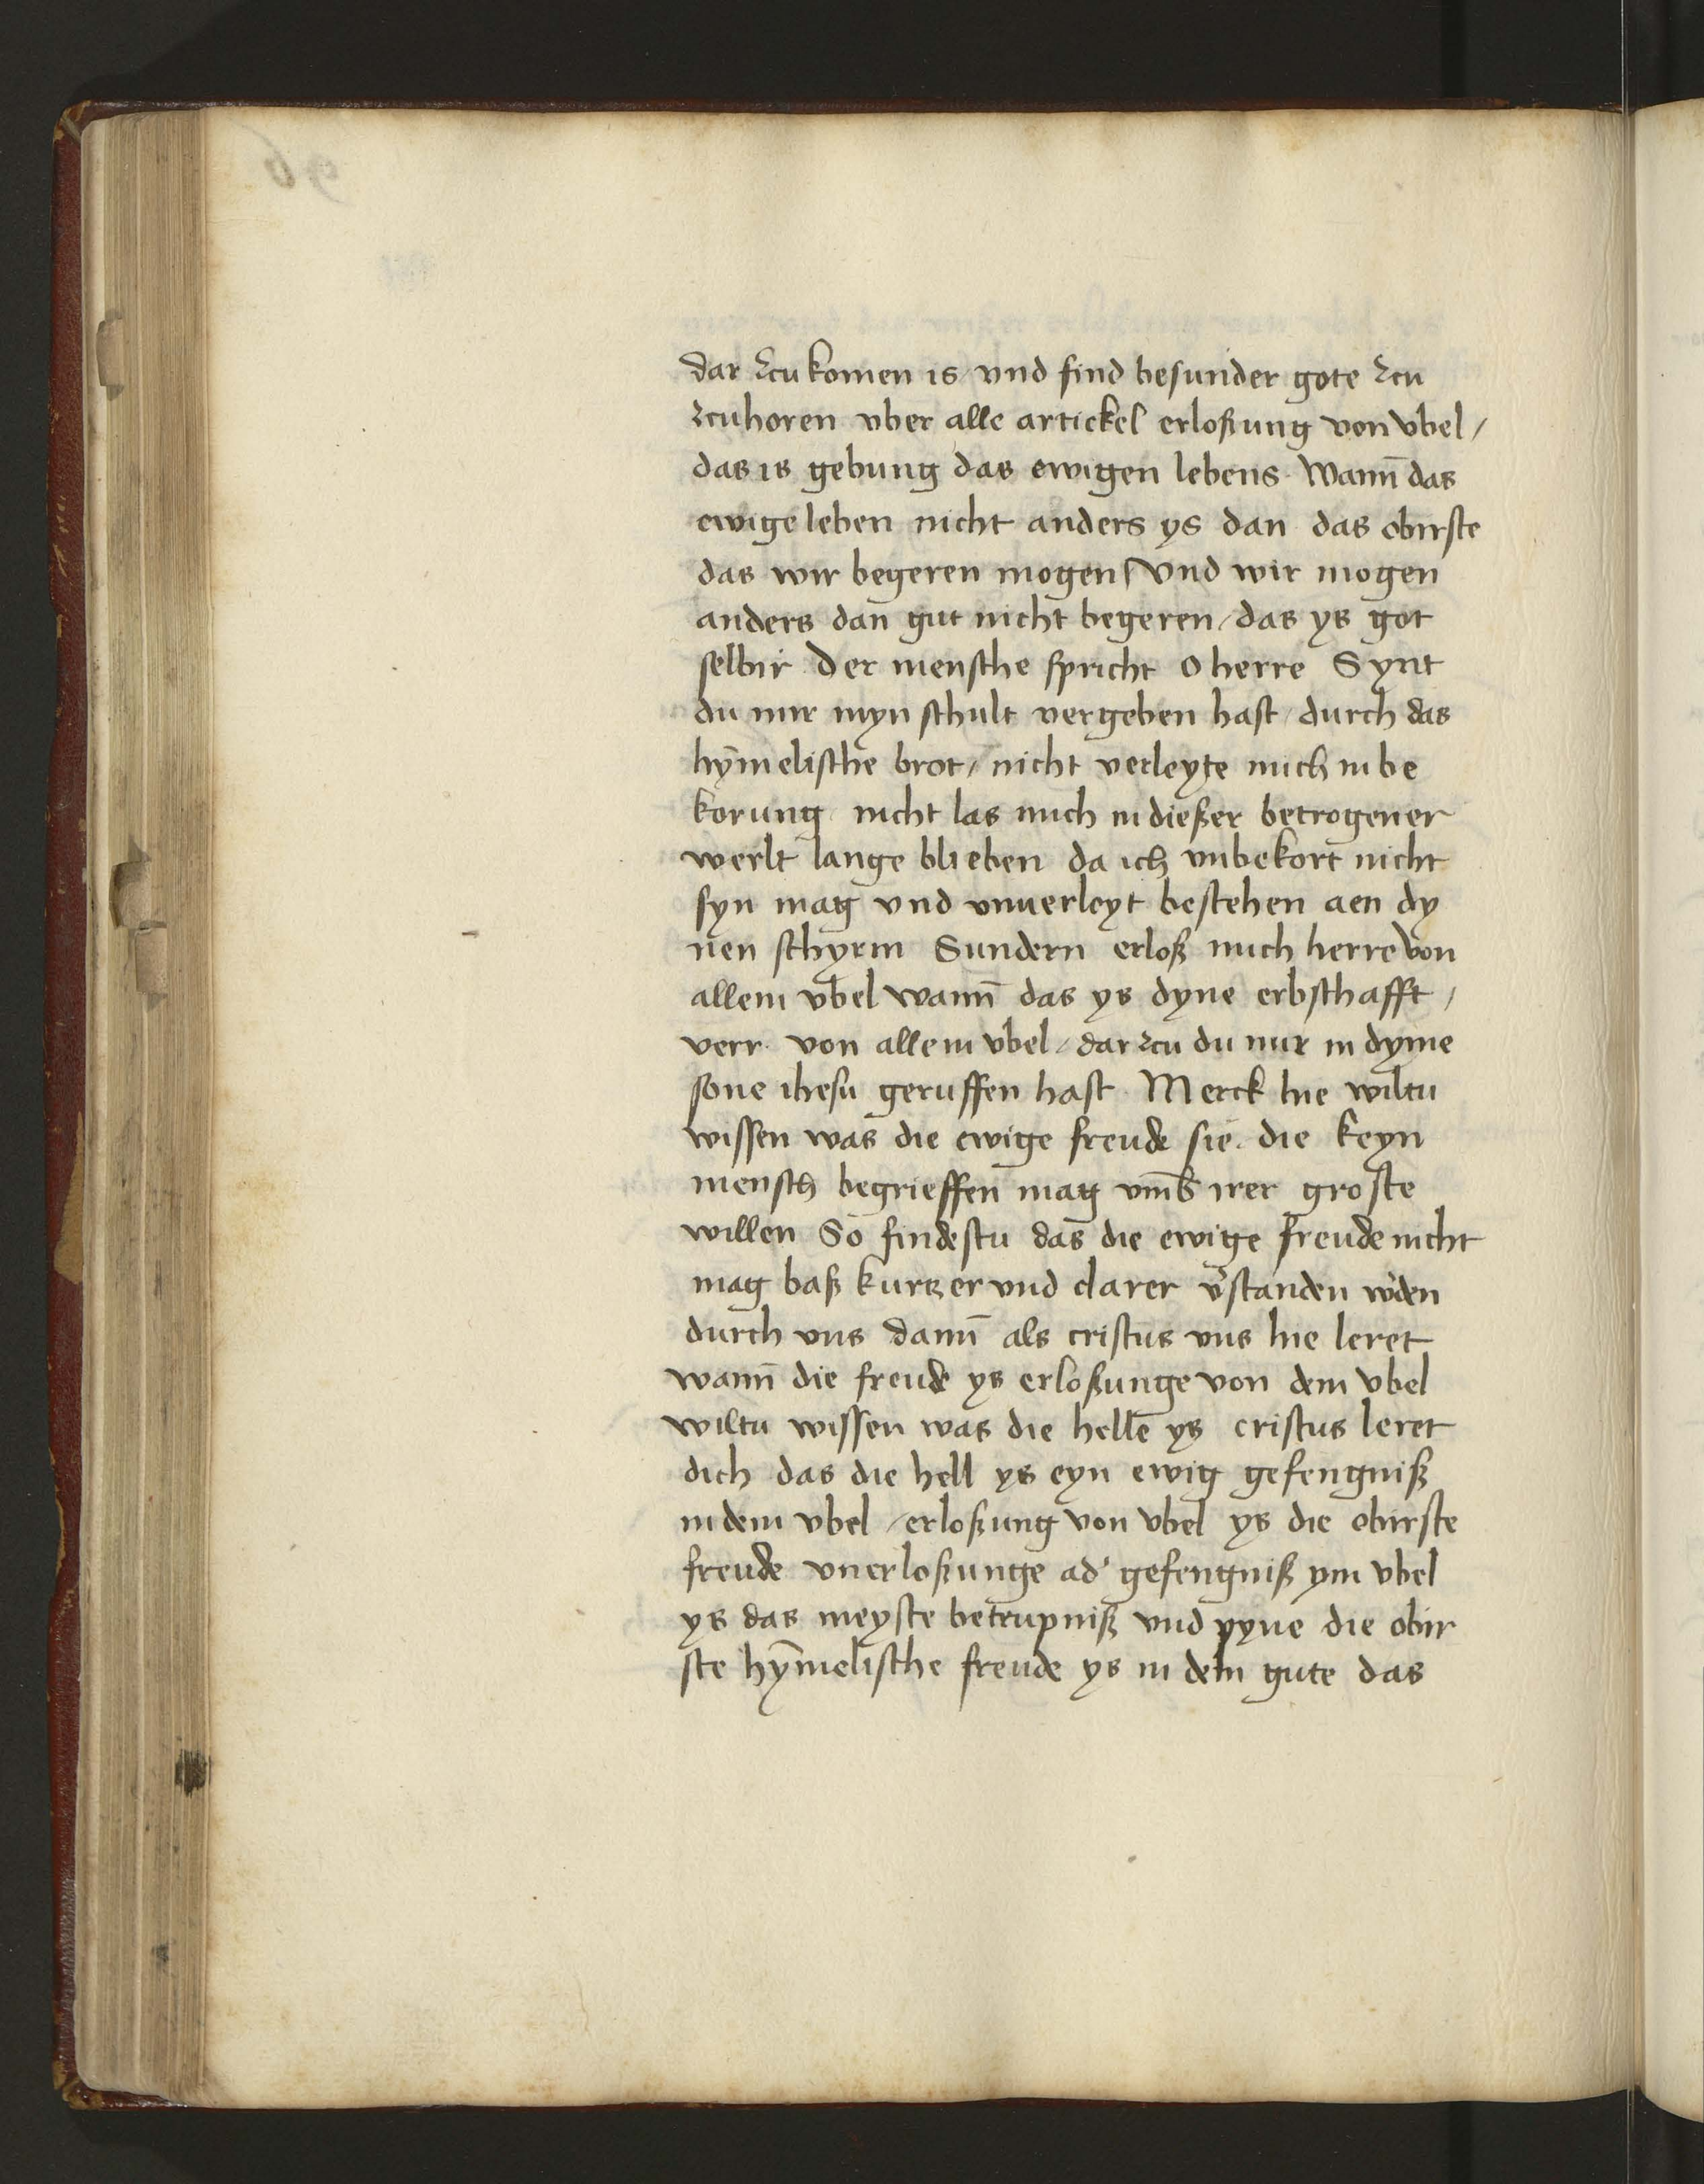 dar zcu komen is vnd find besunder gote zcu
zcuhoren vber alle artickel erloßung von vbel /
das is gebung das ewigen lebens. Wann̄ das
ewige leben nicht anders ys dan das obirste
das wir begeren mogen / vnd wir mogen
anders dan gut nicht begeren / das ys got
selbir der mensche spricht o herre Synt
du mir myn schult vergeben hast / durch das
hȳmelische brot / nicht verleyte mich in be
korung nicht las mich in dießer betrogener
werlt lange blieben da ich vnbekort nicht
syn mag vnd vnuerleyt bestehen aen dy
nen schyrm Sundern erloß mich herre von
allem vbel wann̄ das ys dyne erbschafft /
verr von allem vbel / dar zcu du mir in dyme
sone ihesu geruffen hast Merck hie wiltu
wissen was die ewige freude sie. die keyn
mensch begrieffen mag vm̄b irer groste
willen So findestu das die ewige freude nicht
mag baß kurtzer vnd clarer v̓standen w̓den
durch vns dann̄ als cristus vns hie leret
wann̄ die freude ys erloßunge von dem vbel
wiltu wissen was die helle ys cristus leret
dich das die hell ys eyn ewig gefengniß
in dem vbel / erloßung von vbel ys die obirste
freude vnerloßunge ad̓ gefengniß ym vbel
ys das meyste betrupniß vnd pyne die obir
ste hȳmelische freude ys in dem gute das